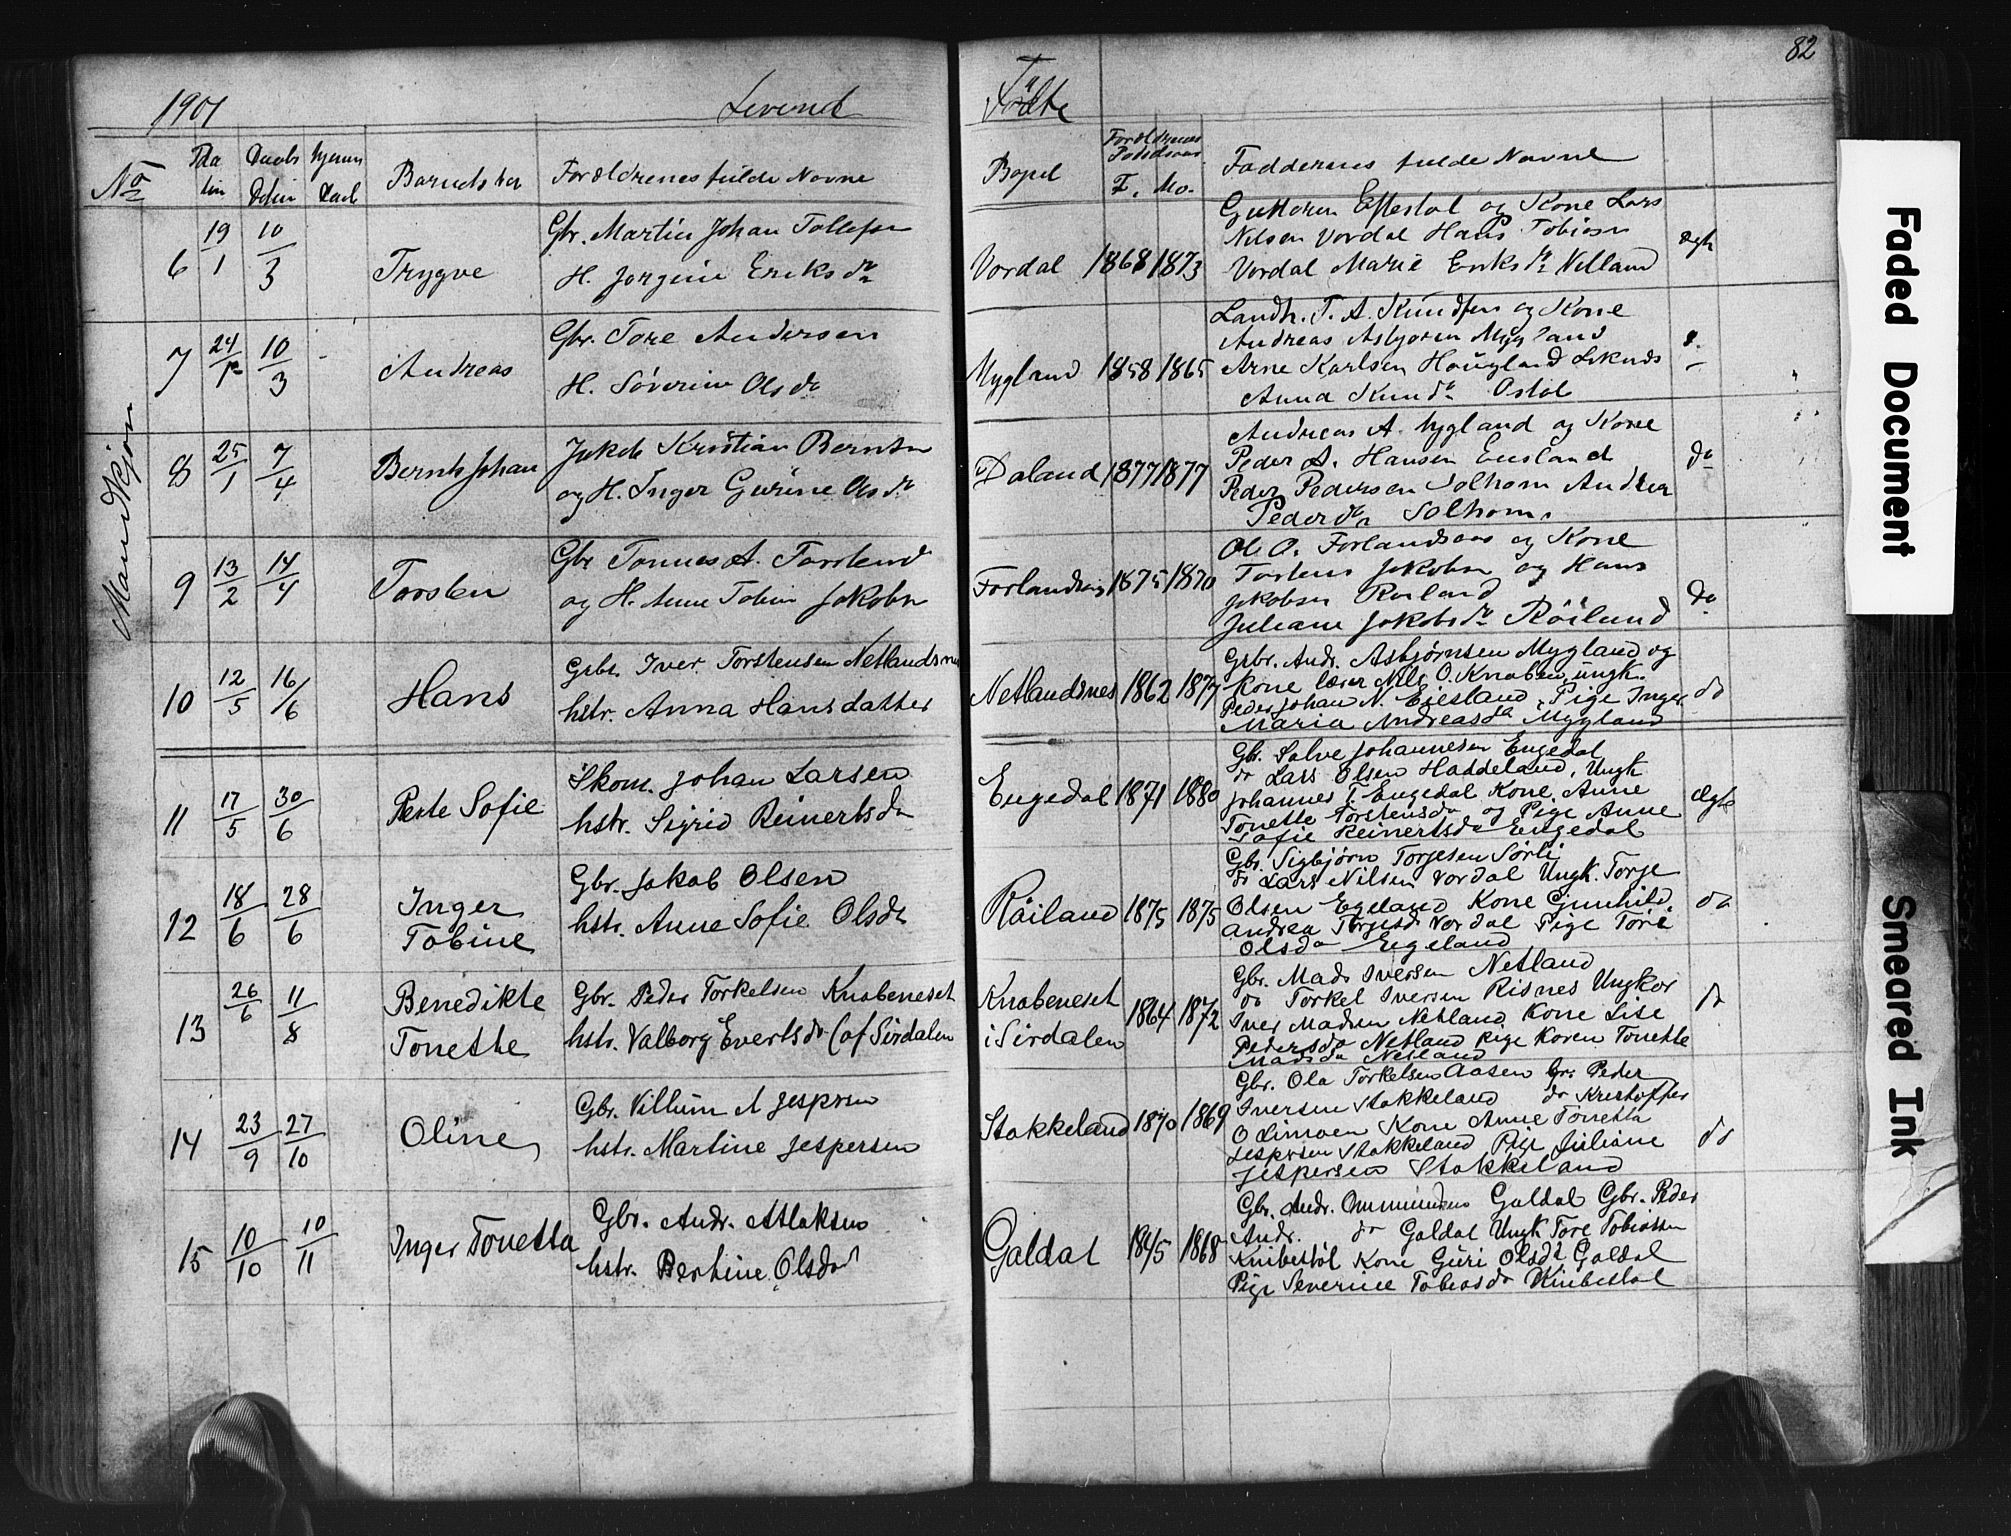 82
1901 Levend Födte
No Daa Daabs hjemm Barnets Forældrenes fulde Navne Bopel Forældrenes Faddernes fulde Navne
Datum døbt F. Mo.
Mandkjøn
6 19/1 10/3 Trygve
Gbr. Martin Johan Tollefsn
H. Jorgine Eriksdr
Vordal 1868 1873
Guttorm Eftestøl og Kone Lars
Nilsen Vordal Hans Tobiasn
Vordal Marie Eriksdr Netland
ægte
7 24/1 10/3 Andreas
Gbr. Tore Andersen
H. Söverine Olsda
Mygland 1858 1865
Landh. T. A. Knudsen og Kone
Andreas Asbjoren Mygland
Arne Karlsen Haugland
Anna Knuda
8 25/1 7/4 Bernt Johan
Jakob Kristian Berntsn
og H. Inger Gurine Olsdr
Daland 1877 1877
Andreas A. Mygland og Kone
Peder A. Hansen Eiesland
Peder Pedersen Solhom Andrea
Pederda Solhom.
do
9 13/2 14/4 Torsten
Gbr Tonnes A. Forsland
og H. Anne Tobin Jakobn
Forlandsaas 1875 1870
Ole O. Forlandsaas og Kone
Tosten Jakobsn og Hans
Jakobsn Roiland
Juliane Jakobsdr Röiland
do
10 12/5 16/6 Hans
Grbr. Iver Torstensen Netlandsnes
hstr. Anna Hansdatter
Netlandsnes 1862 1877
Grbr. Andr. Asbjørnsen Mygland og
Kone lærer Nils O. Knaben, ungk.
Peder Johan N. Eiesland, Pige Inger
Maria Andreasda Mygland
do
11 17/5 30/6 Perte Sofie
Skom. Johan Larsen
hstr. Sigrid Reinertsda
Engedal 1871 1880
Gbr. Salve Johannesen Engedal
do Lars Olsen Haddeland, Ungk
Johannes T. Engedal Kone Anne
Tonette Torstensda og Pige Anne
Sofie Reinertsda Engedal
ægte
12 18/6 28/6 Inger
Tobine
Gbr. Jakob Olsen
hstr. Anne Sofie Olsda
Röiland 1875 1875
Gbr. Sigbjørn Torjesen Sørli
do Lars Nilsen Vordal Ungk. Torje
Olsen Egeland Kone Gunhild
Andrea Torjesd Vordal Pige Tore
Olsda Egeland
do
13 26/6 11/8 Benedikte
Tonette
Gbr. Peder Torkelsen Knabeneset
hstr. Valborg Evertsdr (af Sirdalen
Knabeneset
i Sirdalen 1864 1872
Gbr. Mads Iversen Netland
do Torkel Iversen Risnes Ungkar
Iver Madsen Netland Kone Lise
Pedersda Netland Pige Karen Tonette
Madsda Netland
do
14 23/9 27/10 Oline
Gbr. Vilhum A Jespersen
hstr. Martine Jespersen
Stokkeland 1870 1869
Gbr. Ola Torkelsen Aasen Gr. Peder
Iversen Stokkeland do Kristoffer
O Limoen Kone Anne Tonetta
Jespersen Stokkeland Pige Juliane
Jespersen Stokkeland
do
15 10/10 10/11 Inger Tonetta
Gbr. Andr. Atlaksen
hstr. Bertine Olsdad
Galdal 1845 1868
Gbr. Andr. Ommundsen Galdal Gbr. Peder
Andr. do Galdal Ungk Tore Tobiassen
Knibestøl Kone Guri Olsda Galdal
Pige Severine Tobiasda Knibestøl
Faded Document
Smeared Ink